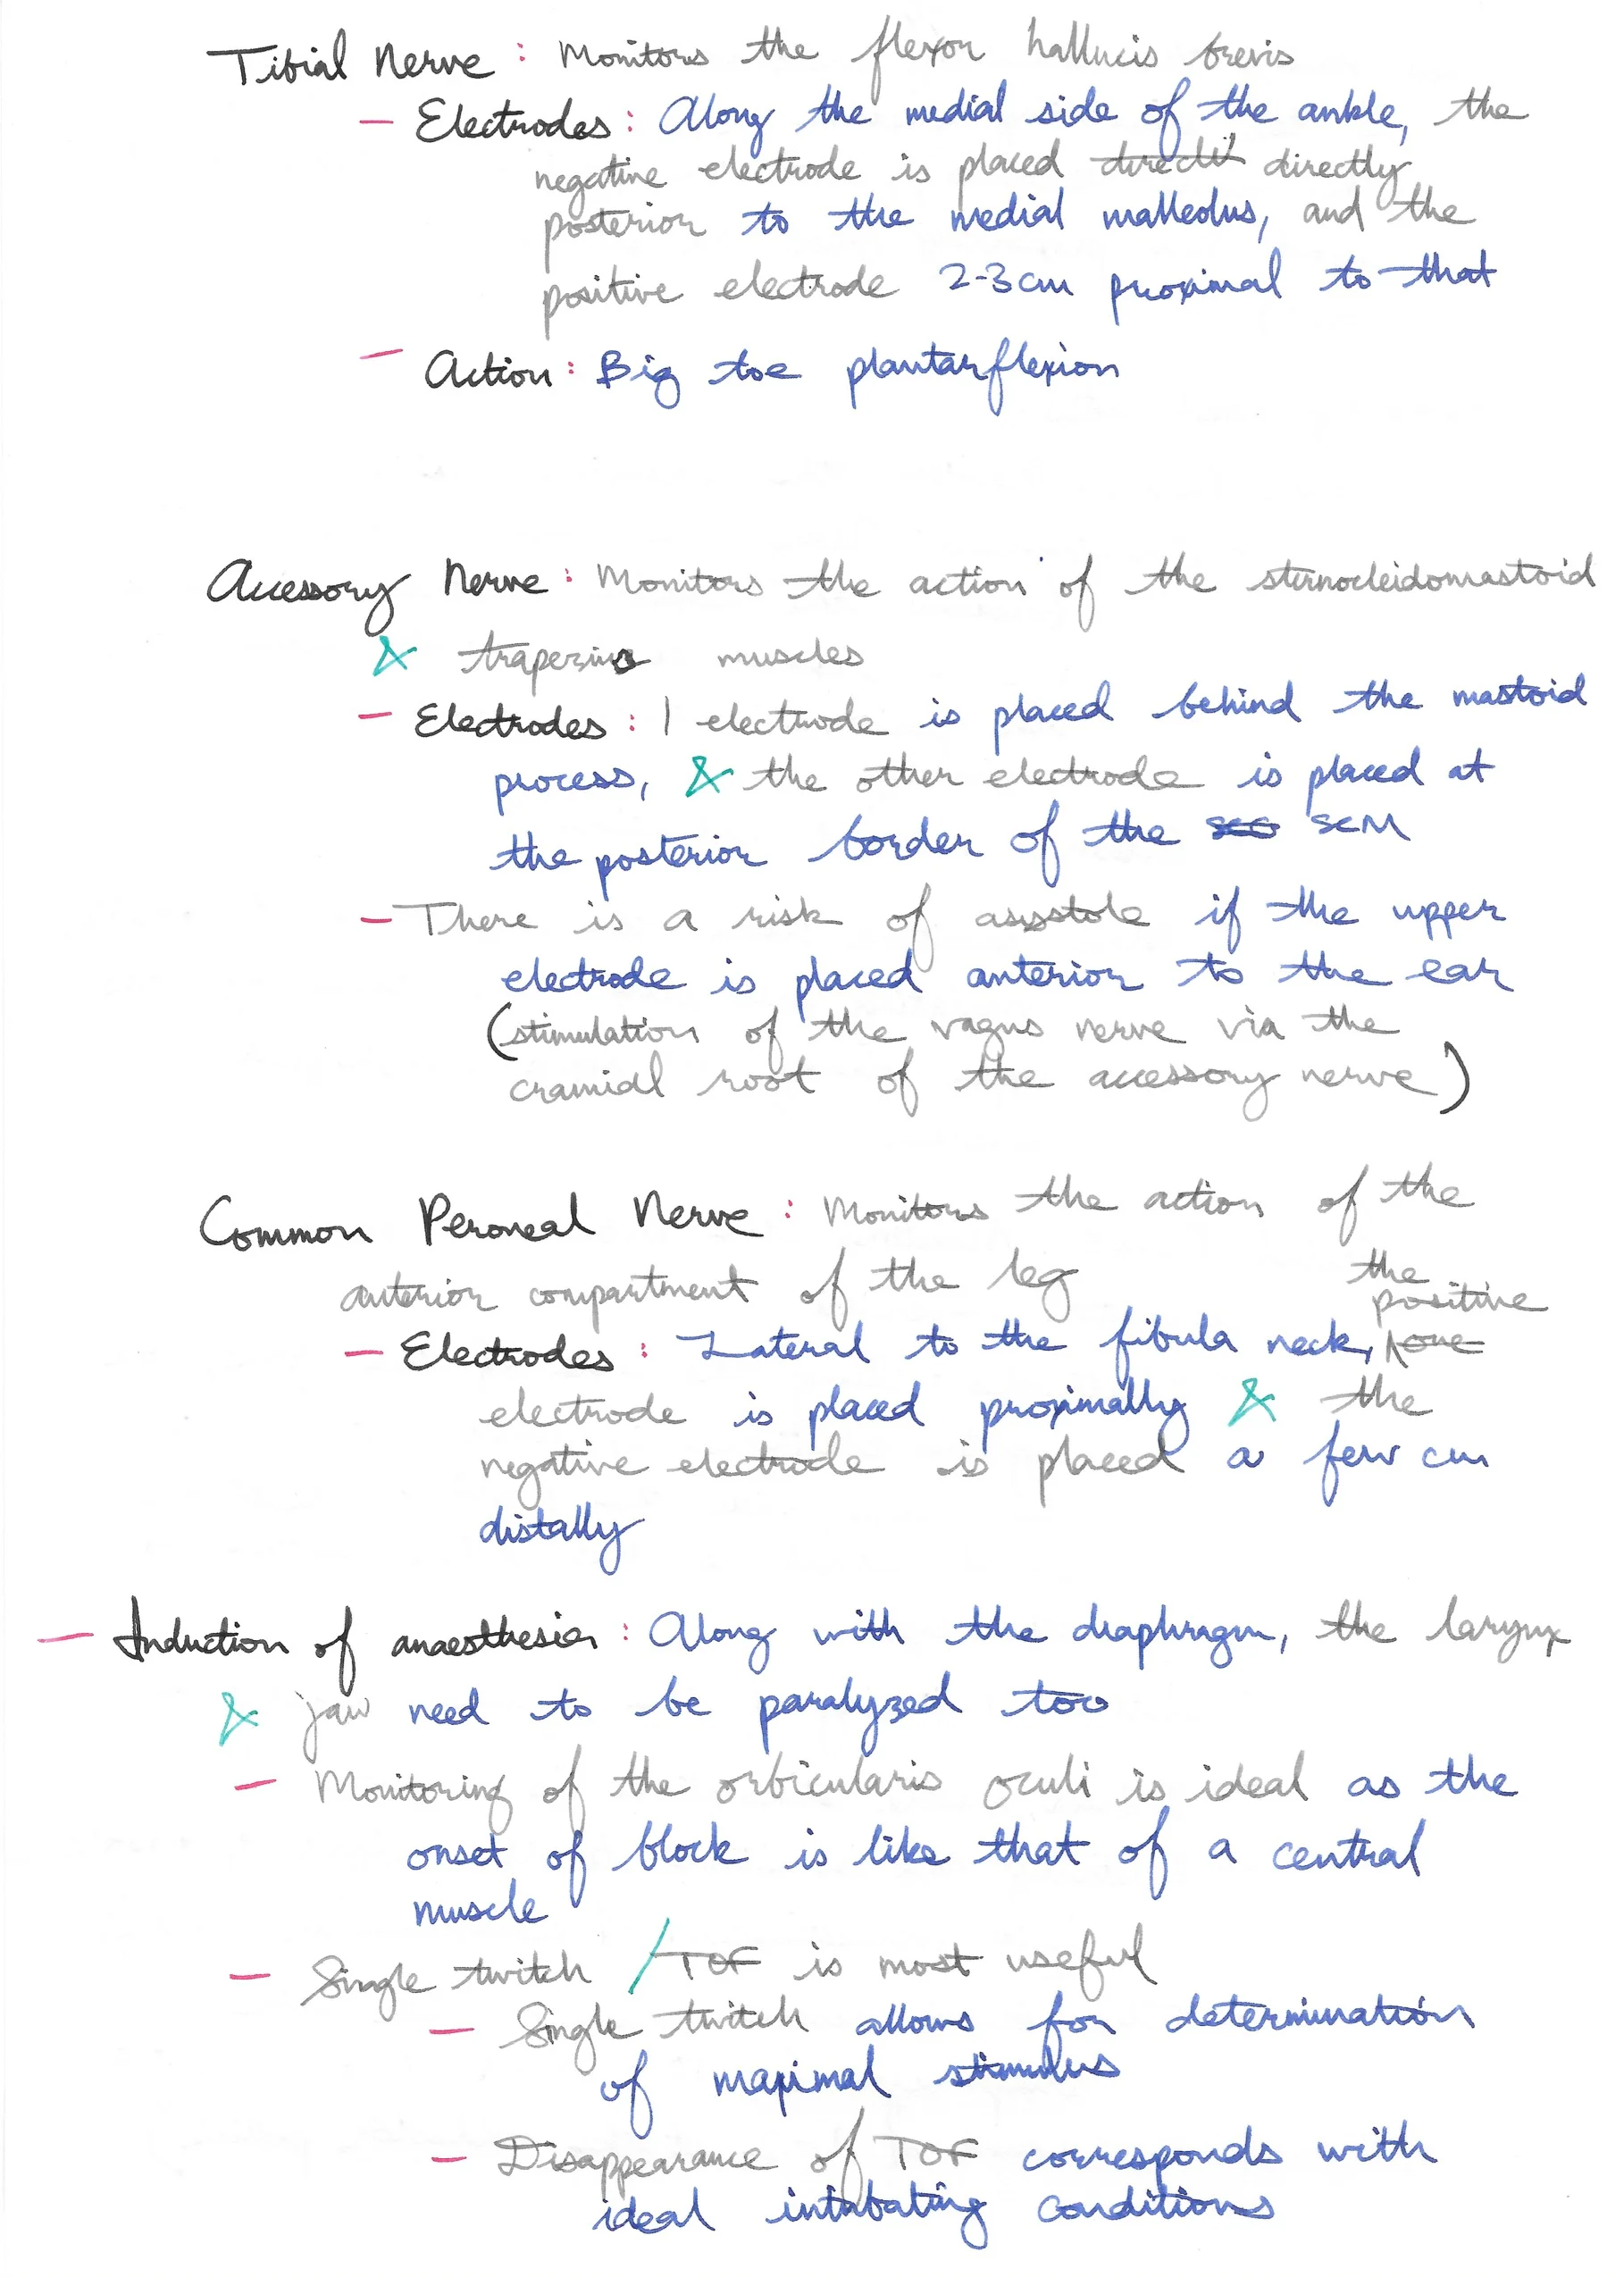 Tibial Nerve : Monitors the flexor hallucis brevis
— Electrodes : Along the medial side of the ankle, the
negative electrode is placed directl directly
posterior to the medial malleolus, and the
positive electrode 2-3cm proximal to that
— Action : Big toe plantarflexion
Accessory Nerve : Monitors the action of the sternocleidomastoid
& trapezius muscles
— Electrodes : 1 electrode is placed behind the mastoid
process, & the other electrode is placed at
the posterior border of the SCM
— There is a risk of asystole if the upper
electrode is placed anterior to the ear
(stimulation of the vagus nerve via the
cranial root of the accessory nerve)
Common Peroneal Nerve : Monitors the action of the
anterior compartment of the leg
the
positive
— Electrodes : Lateral to the fibula neck,
electrode is placed proximally & the
negative electrode is placed a few cm
distally
— Induction of anaesthesia : Along with the diaphragm, the larynx
& jaw need to be paralyzed too
— Monitoring of the orbicularis oculi is ideal as the
onset of block is like that of a central
muscle
— Single twitch / TOF is most useful
— Single twitch allows for determination
of maximal stimulus
— Disappearance of TOF corresponds with
ideal intubating conditions